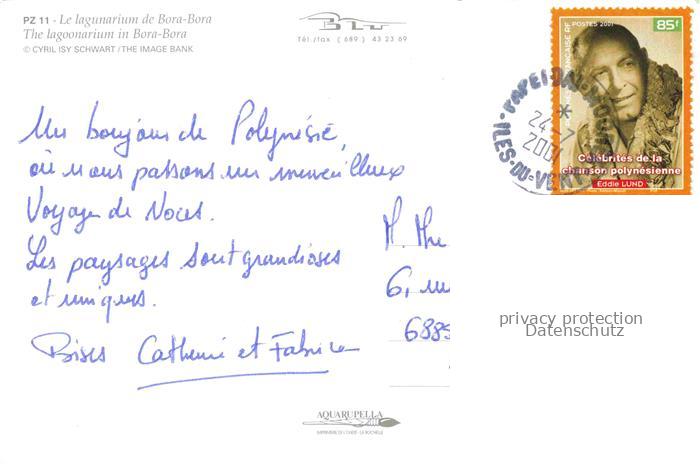 PZ 11 - Le lagunarium de Bora-Bora
The lagoonarium in Bora-Bora
© CYRIL ISY SCHWART / THE IMAGE BANK
Tél./fax ( 689 ) 43 23 69
POSTES 2001
85F
24-7
2001
ILES-DU-VENT
Célébrités de la
chanson polynésienne
Eddie LUND
Un bonjour de Polynésie,
où nous passons un merveilleux
Voyage de Noces.
Les paysages sont grandioses
et uniques.
Bises Catherine et Fabrice
M.
6,
6885
privacy protection
Datenschutz
AQUARUPELLA